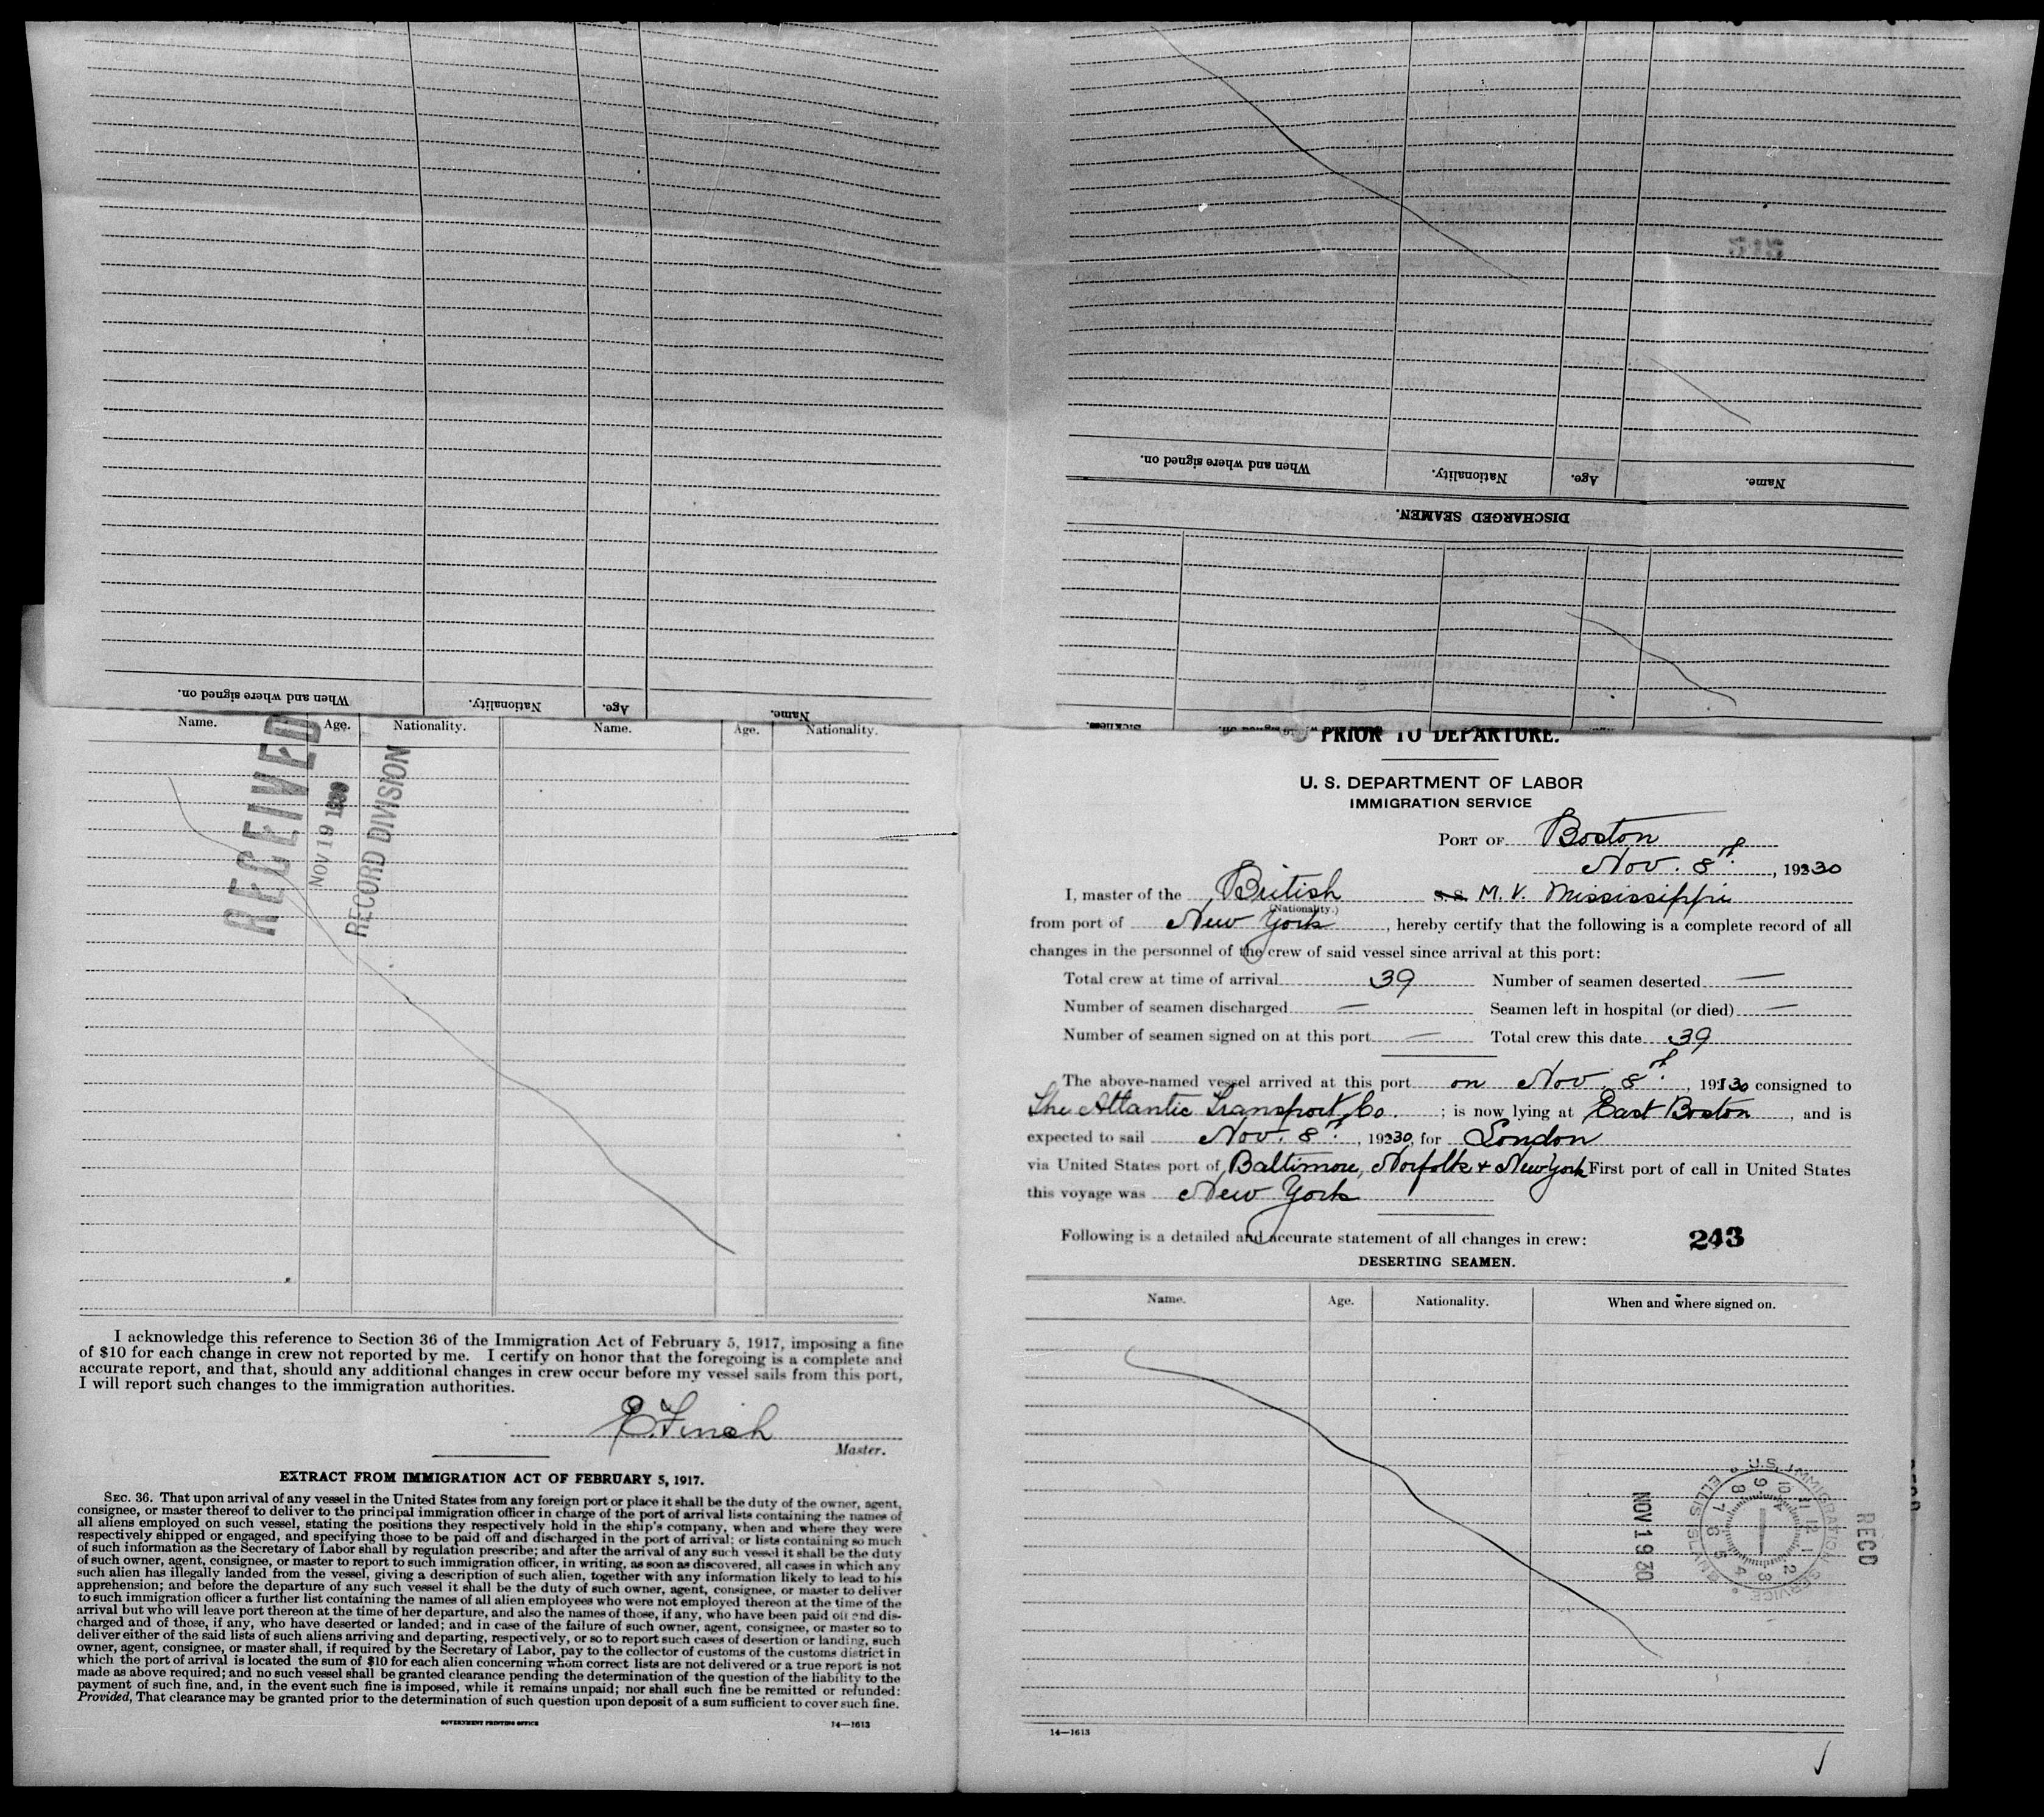 When and where signed on.
Nationality.
Age.
Name.
DISCHARGED SEAMEN.
Name.
Age.
Nationality.
When and where signed on.
Sickness
Name. Age. Nationality. Name. Age. Nationality.
RECEIVED
NOV 19 1930
RECORD DIVISION
I acknowledge this reference to Section 36 of the Immigration Act of February 5, 1917, imposing a fine
of $10 for each change in crew not reported by me. I certify on honor that the foregoing is a complete and
accurate report, and that, should any additional changes in crew occur before my vessel sails from this port,
I will report such changes to the immigration authorities.
E. Finch
Master.
EXTRACT FROM IMMIGRATION ACT OF FEBRUARY 5, 1917.
SEC. 36. That upon arrival of any vessel in the United States from any foreign port or place it shall be the duty of the owner, agent,
consignee, or master thereof to deliver to the principal immigration officer in charge of the port of arrival lists containing the names of
all aliens employed on such vessel, stating the positions they respectively hold in the ship's company, when and where they were
respectively shipped or engaged, and specifying those to be paid off and discharged in the port of arrival; or lists containing so much
of such information as the Secretary of Labor shall by regulation prescribe; and after the arrival of any such vessel it shall be the duty
of such owner, agent, consignee, or master to report to such immigration officer, in writing, as soon as discovered, all cases in which any
such alien has illegally landed from the vessel, giving a description of such alien, together with any information likely to lead to his
apprehension; and before the departure of any such vessel it shall be the duty of such owner, agent, consignee, or master to deliver
to such immigration officer a further list containing the names of all alien employees who were not employed thereon at the time of the
arrival but who will leave port thereon at the time of her departure, and also the names of those, if any, who have been paid off and dis-
charged and of those, if any, who have deserted or landed; and in case of the failure of such owner, agent, consignee, or master so to
deliver either of the said lists of such aliens arriving and departing, respectively, or so to report such cases of desertion or landing, such
owner, agent, consignee, or master shall, if required by the Secretary of Labor, pay to the collector of customs of the customs district in
which the port of arrival is located the sum of $10 for each alien concerning whom correct lists are not delivered or a true report is not
made as above required; and no such vessel shall be granted clearance pending the determination of the question of the liability to the
payment of such fine, and, in the event such fine is imposed, while it remains unpaid; nor shall such fine be remitted or refunded:
Provided, That clearance may be granted prior to the determination of such question upon deposit of a sum sufficient to cover such fine.
GOVERNMENT PRINTING OFFICE 14—1613
PRIOR TO DEPARTURE.
U. S. DEPARTMENT OF LABOR
IMMIGRATION SERVICE
PORT OF Boston
Nov. 8th, 1930
I, master of the British S. S. M. V. Mississippi
(Nationality.)
from port of New York, hereby certify that the following is a complete record of all
changes in the personnel of the crew of said vessel since arrival at this port:
Total crew at time of arrival 39 Number of seamen deserted —
Number of seamen discharged — Seamen left in hospital (or died) —
Number of seamen signed on at this port — Total crew this date 39
The above-named vessel arrived at this port on Nov. 8th, 1930 consigned to
The Atlantic Transport Co. ; is now lying at East Boston, and is
expected to sail Nov. 8th, 1930, for London
via United States port of Baltimore, Norfolk + New York First port of call in United States
this voyage was New York
Following is a detailed and accurate statement of all changes in crew: 243
DESERTING SEAMEN.
Name. Age. Nationality. When and where signed on.
U.S. IMMIGRATION SERVICE
ELLIS ISLAND
RECD
NOV 19 30
14—1613